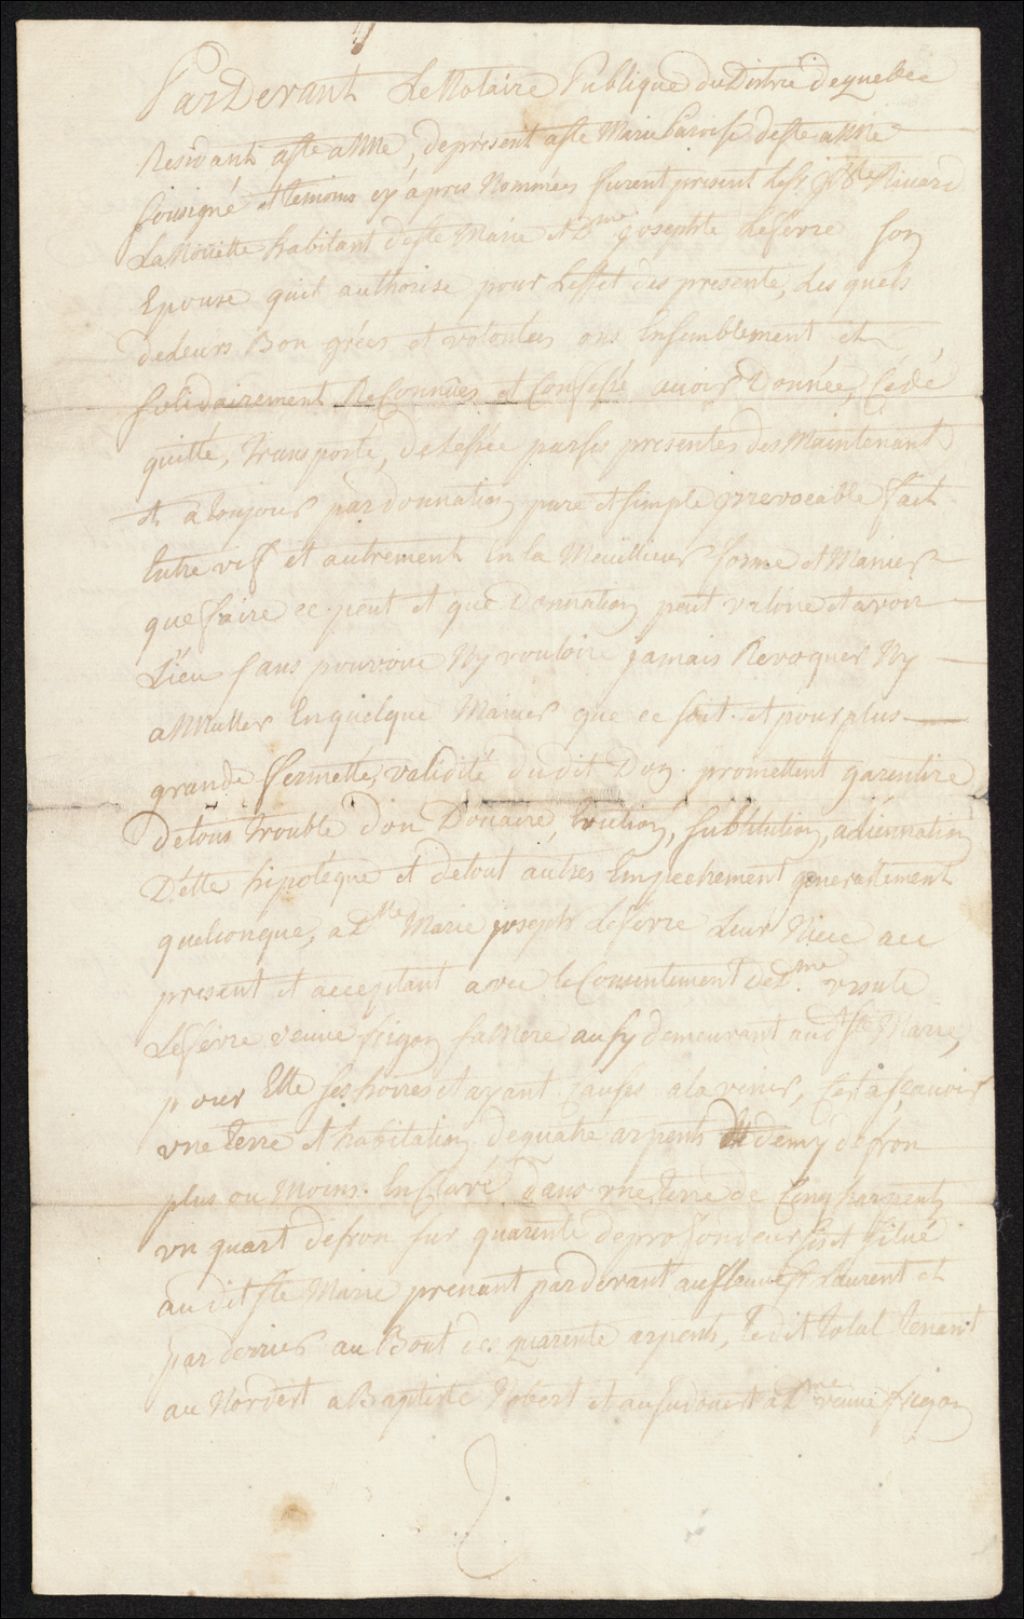 ParDevant Le Notaire Publique du Distric de quebec
Residant a Ste anne, depresent a Ste Marie Paroisse de Ste anne
Sousigné et temoins cy áprés Nommées furent present Le Sr. J Bte Rivard
La Nouette habitant de Ste Marie et Dme josephte Lefévre son
Epouse quil authorise pour Leffet des presente, Les quels
de Leurs Bon grées et volontées ons Ensemblement et
solidairement ReConnües et Confessé avoir Donnée, Cédé
quitté, transporté, delessée par ses presentes des Maintenant
et a toujours par donnation pure et simple yrrevocable fait
Entre vif et autrement En la Meüillieur forme et Manier
que faire ce peut et que donnation peut valoire et avoir
Lieu sans pouvoire Ny vouloire jamais Revoquer Ny
aNNuller En quelque Manier que ce soit. et pour plus
grande fermetté, validité du dit Don. promettent garentire
de tous trouble don Doüaire, Eviction, substitution, aliénnation
Dette hipotéque et de tout autres Empechement generallement
quelconque, a Dlle Marie joseph Lefévre Leur Niece a ce
present et acceptant avec le Consentement de Dme. ursule
Lefévre veuve frigon sa Mere ausy demeurant au d. Ste Marie,
pour Elle ses hoires et ayant Causes a la venir, Cest a sçavoir
une terre et habitation de quatre arpents et demy de fron
plus ou Moins. EnClavé dans une terre de Cinq harpents
un quart de fron sur quarente de profondeur sis et situé
au dit Ste Marie prenant par devant au fleuve St Laurent et
par derrier au Bout des quarente arpents, Le dit total tenant
au Nordest a Baptiste Nobert et au sudouest a D. veuve frigon